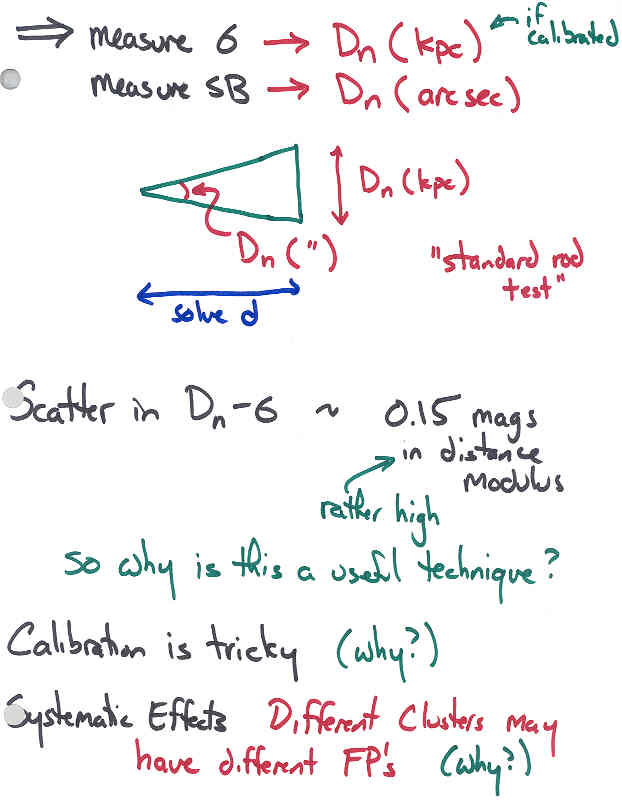 ⇒ measure σ → Dn (kpc) ← if calibrated
measure SB → Dn (arcsec)
Dn (kpc)
Dn (")
"standard rod
test"
solve d
Scatter in Dn-σ ~ 0.15 mags
in distance
modulus
rather high
so why is this a useful technique?
Calibration is tricky (why?)
Systematic Effects Different Clusters may
have different FP's (why?)